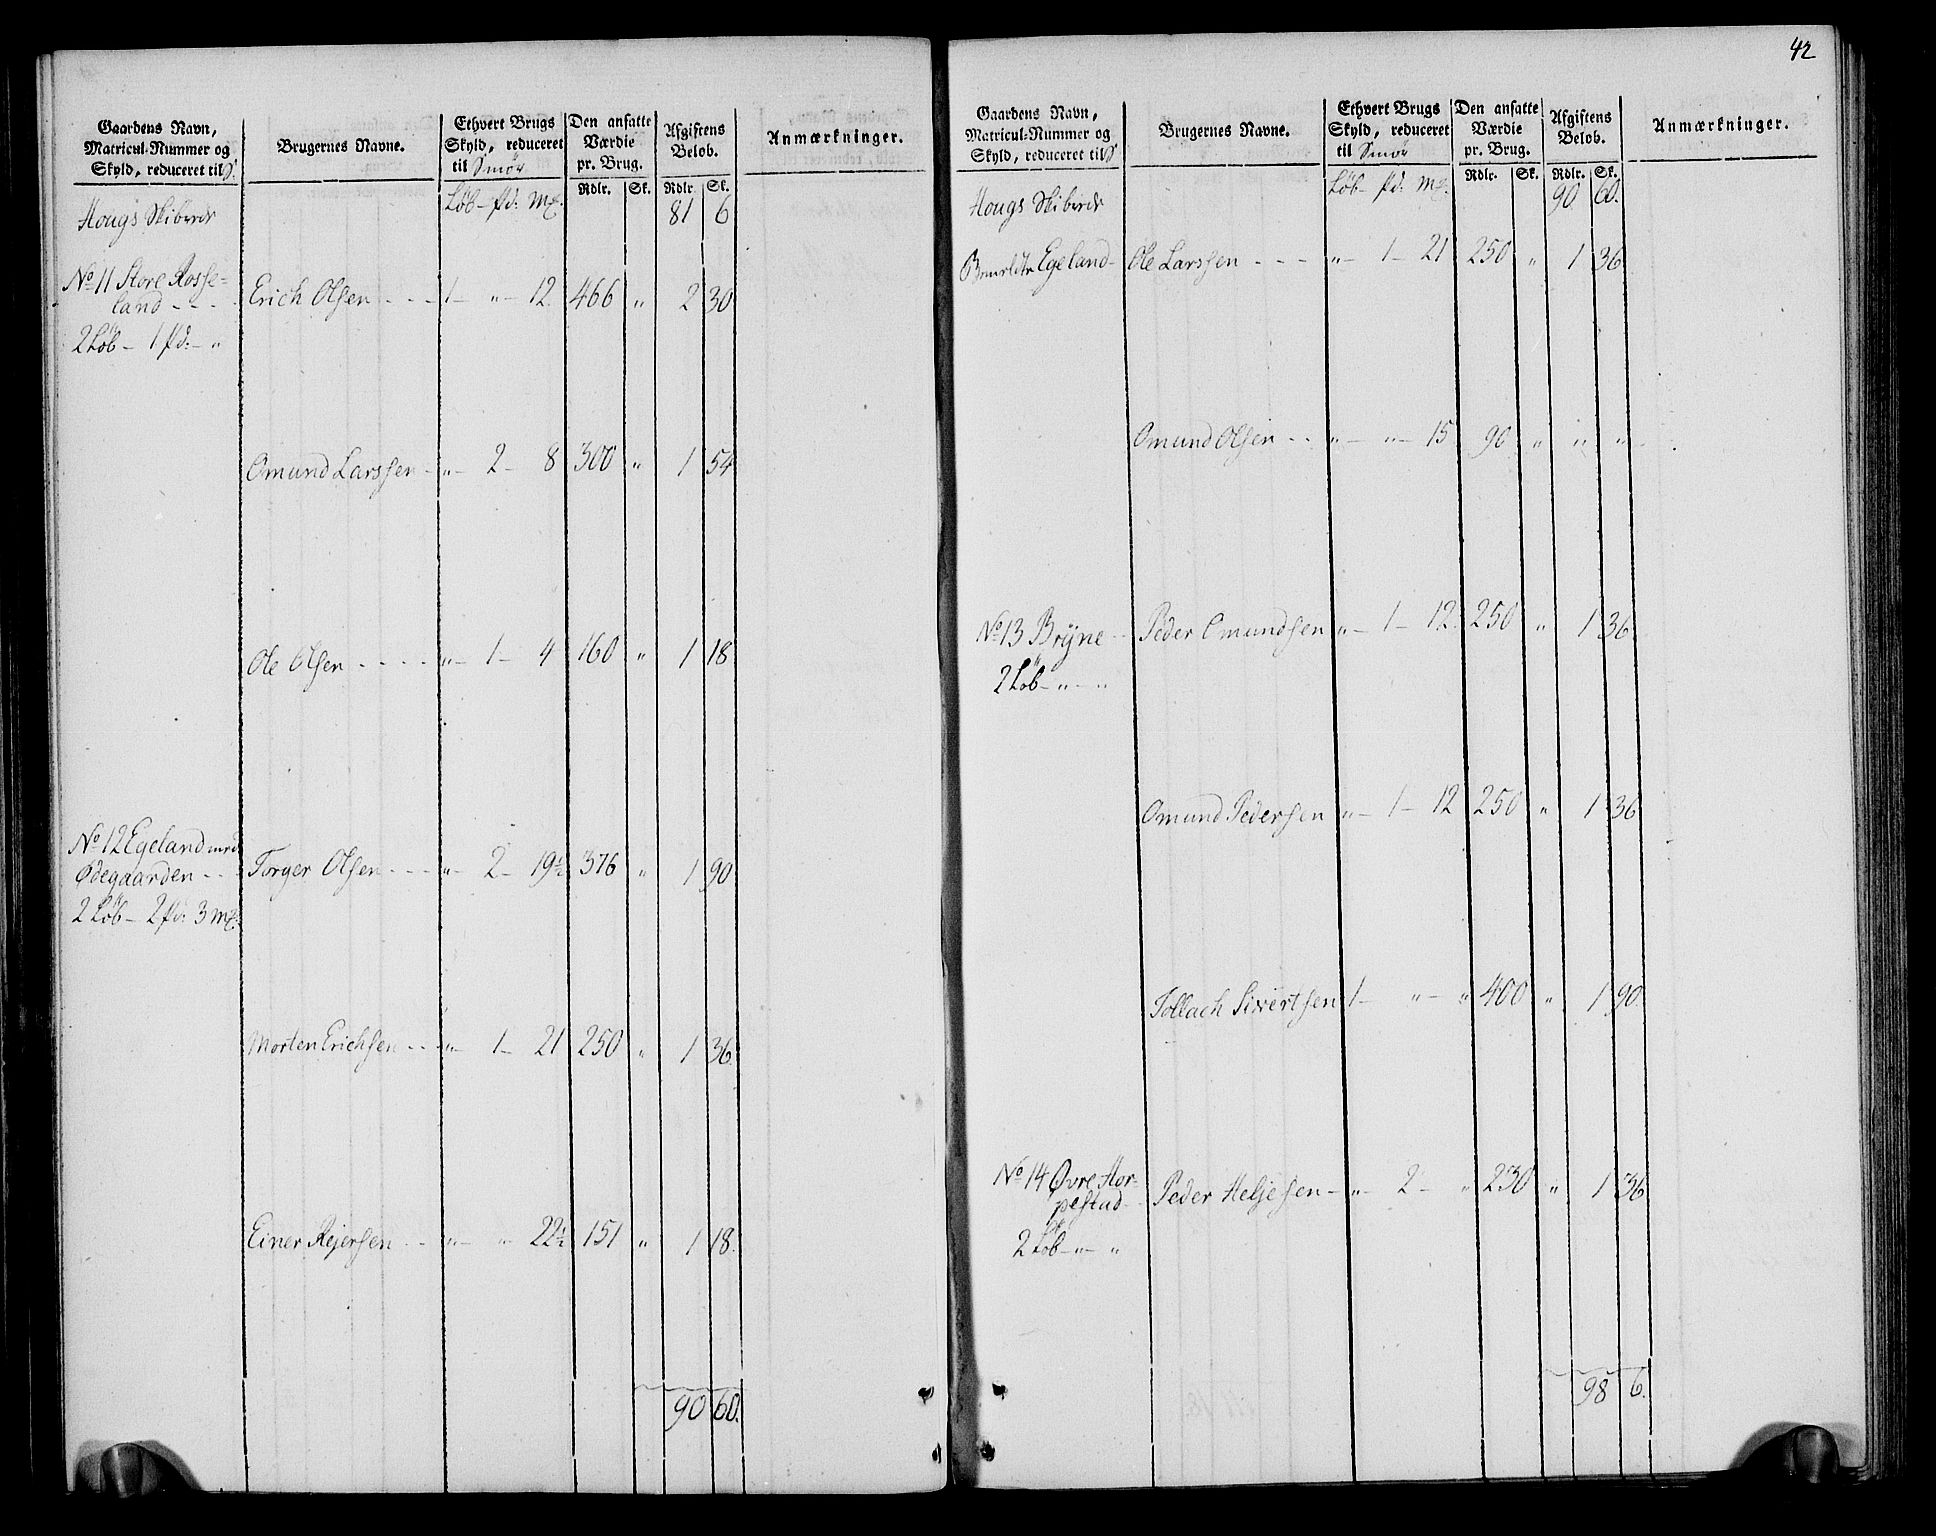 Gaardens Navn,
Matricul-Nummer og
Skyld, reduceret til S.
Brugernes Navne.
Ethvert Brugs
Skyld, reduceret
til Smör
Den ansatte
Værdie
pr. Brug.
Afgiftens
Belob.
Anmærkninger.
Rdlr. Sk. Rdlr. Sk.
Hougs Skibrede Löb - pd: M&. 81 6
No 11 Store Rosse-
land - - - Erich Olsen - - - 1 - " - 12 466 " 2 30
2 Löb - 1 pd: - "
Omund Larssen - " - 2 - 8 300 " 1 54
Ole Olsen - - - - " - 1 - 4 160 " 1 18
No 12 Egeland med
Ødegaarden - - Torger Olsen - - - " - 2 - 19½ 376 " 1 90
2 Löb - 2 pd: 3 M&.
Morten Erichsen - - " - 1 - 21 250 " 1 36.
Einer Rejersen - - " - " - 22½ 151 " 1 18.
90 60.
42
Gaardens Navn,
Matricul-Nummer og
Skyld, reduceret til S
Brugernes Navne.
Ethvert Brugs
Skyld, reduceret
til Smör
Den ansatte
Værdie
pr. Brug.
Afgiftens
Belob.
Anmærkninger.
Rdlr. Sk. Rdlr. Sk.
Hougs Skibrede Löb - pd: M&. 90 60.
Egeland - Ole Larssen - - - " - 1 - 21 250 " 1 36
Omund Olsen - - " - " - 15 90 " " "
No 13 Brÿne - - Peder Omundsen " - 1 - 12 250 " 1 36
2 Löb - " - "
Omund Pedersen " - 1 - 12 250 " 1 36
Tollach Sivertsen 1 - " - " 400 " 1 90.
No 14 Øvre Hor-
pestad - Peder Heljesen - " - 2 - " 230 " 1 36
2 Löb - " - "
98 6.